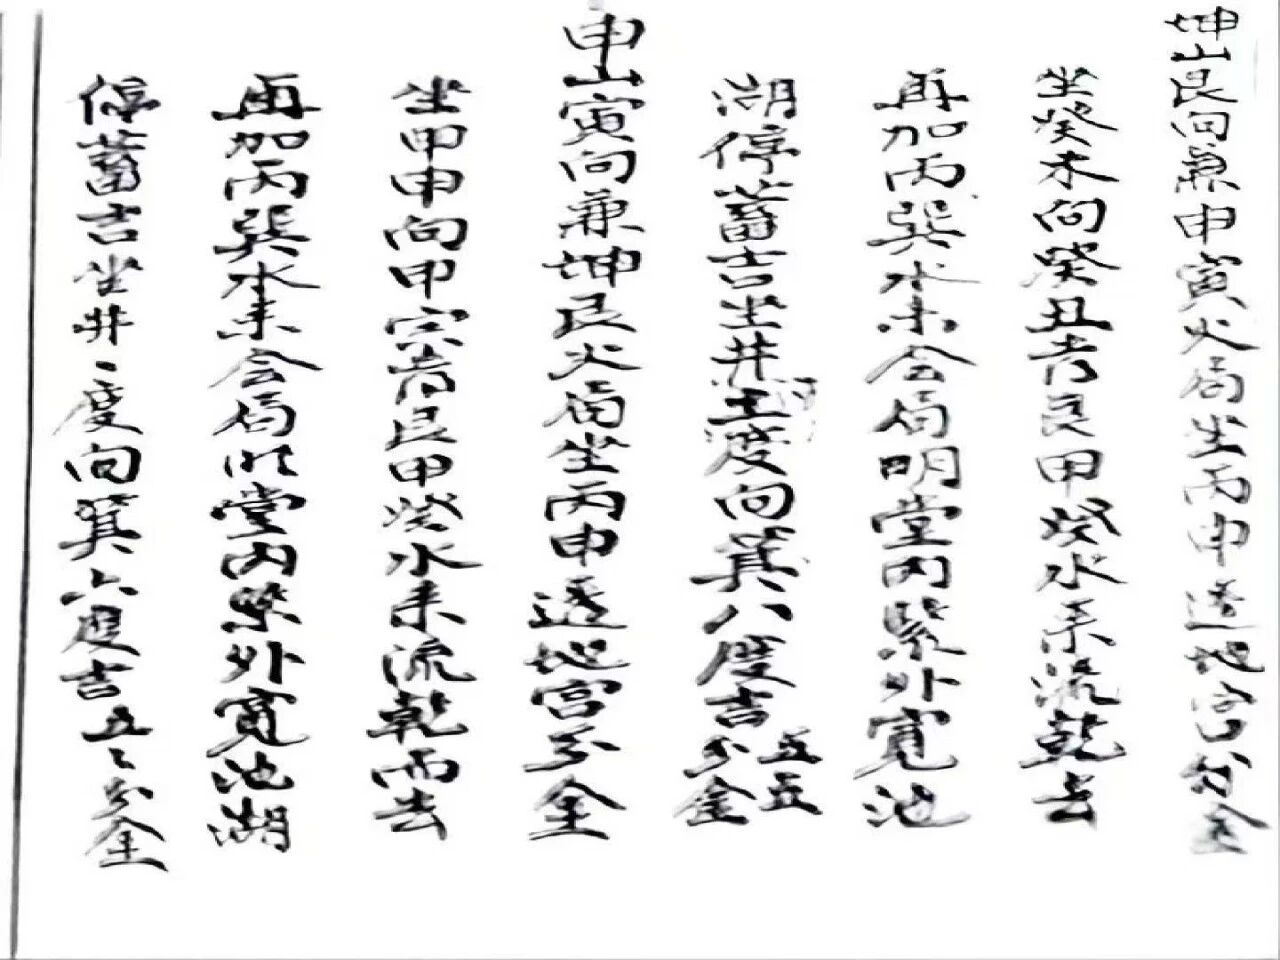 坤山艮向兼申寅火局坐丙申透地宫分金
坐癸未向癸丑专艮甲癸水来流乾去
再加丙巽水来会局明堂内紧外寛池
湖停蓄吉坐井度向箕八度吉五五分金
申山寅向兼坤艮火局坐丙申透地宫分金
坐甲申向甲寅专艮甲癸水来流乾而去
再加丙巽水来会局明堂内紧外寛池湖
停蓄吉坐井〻度向箕六度吉五〻分金